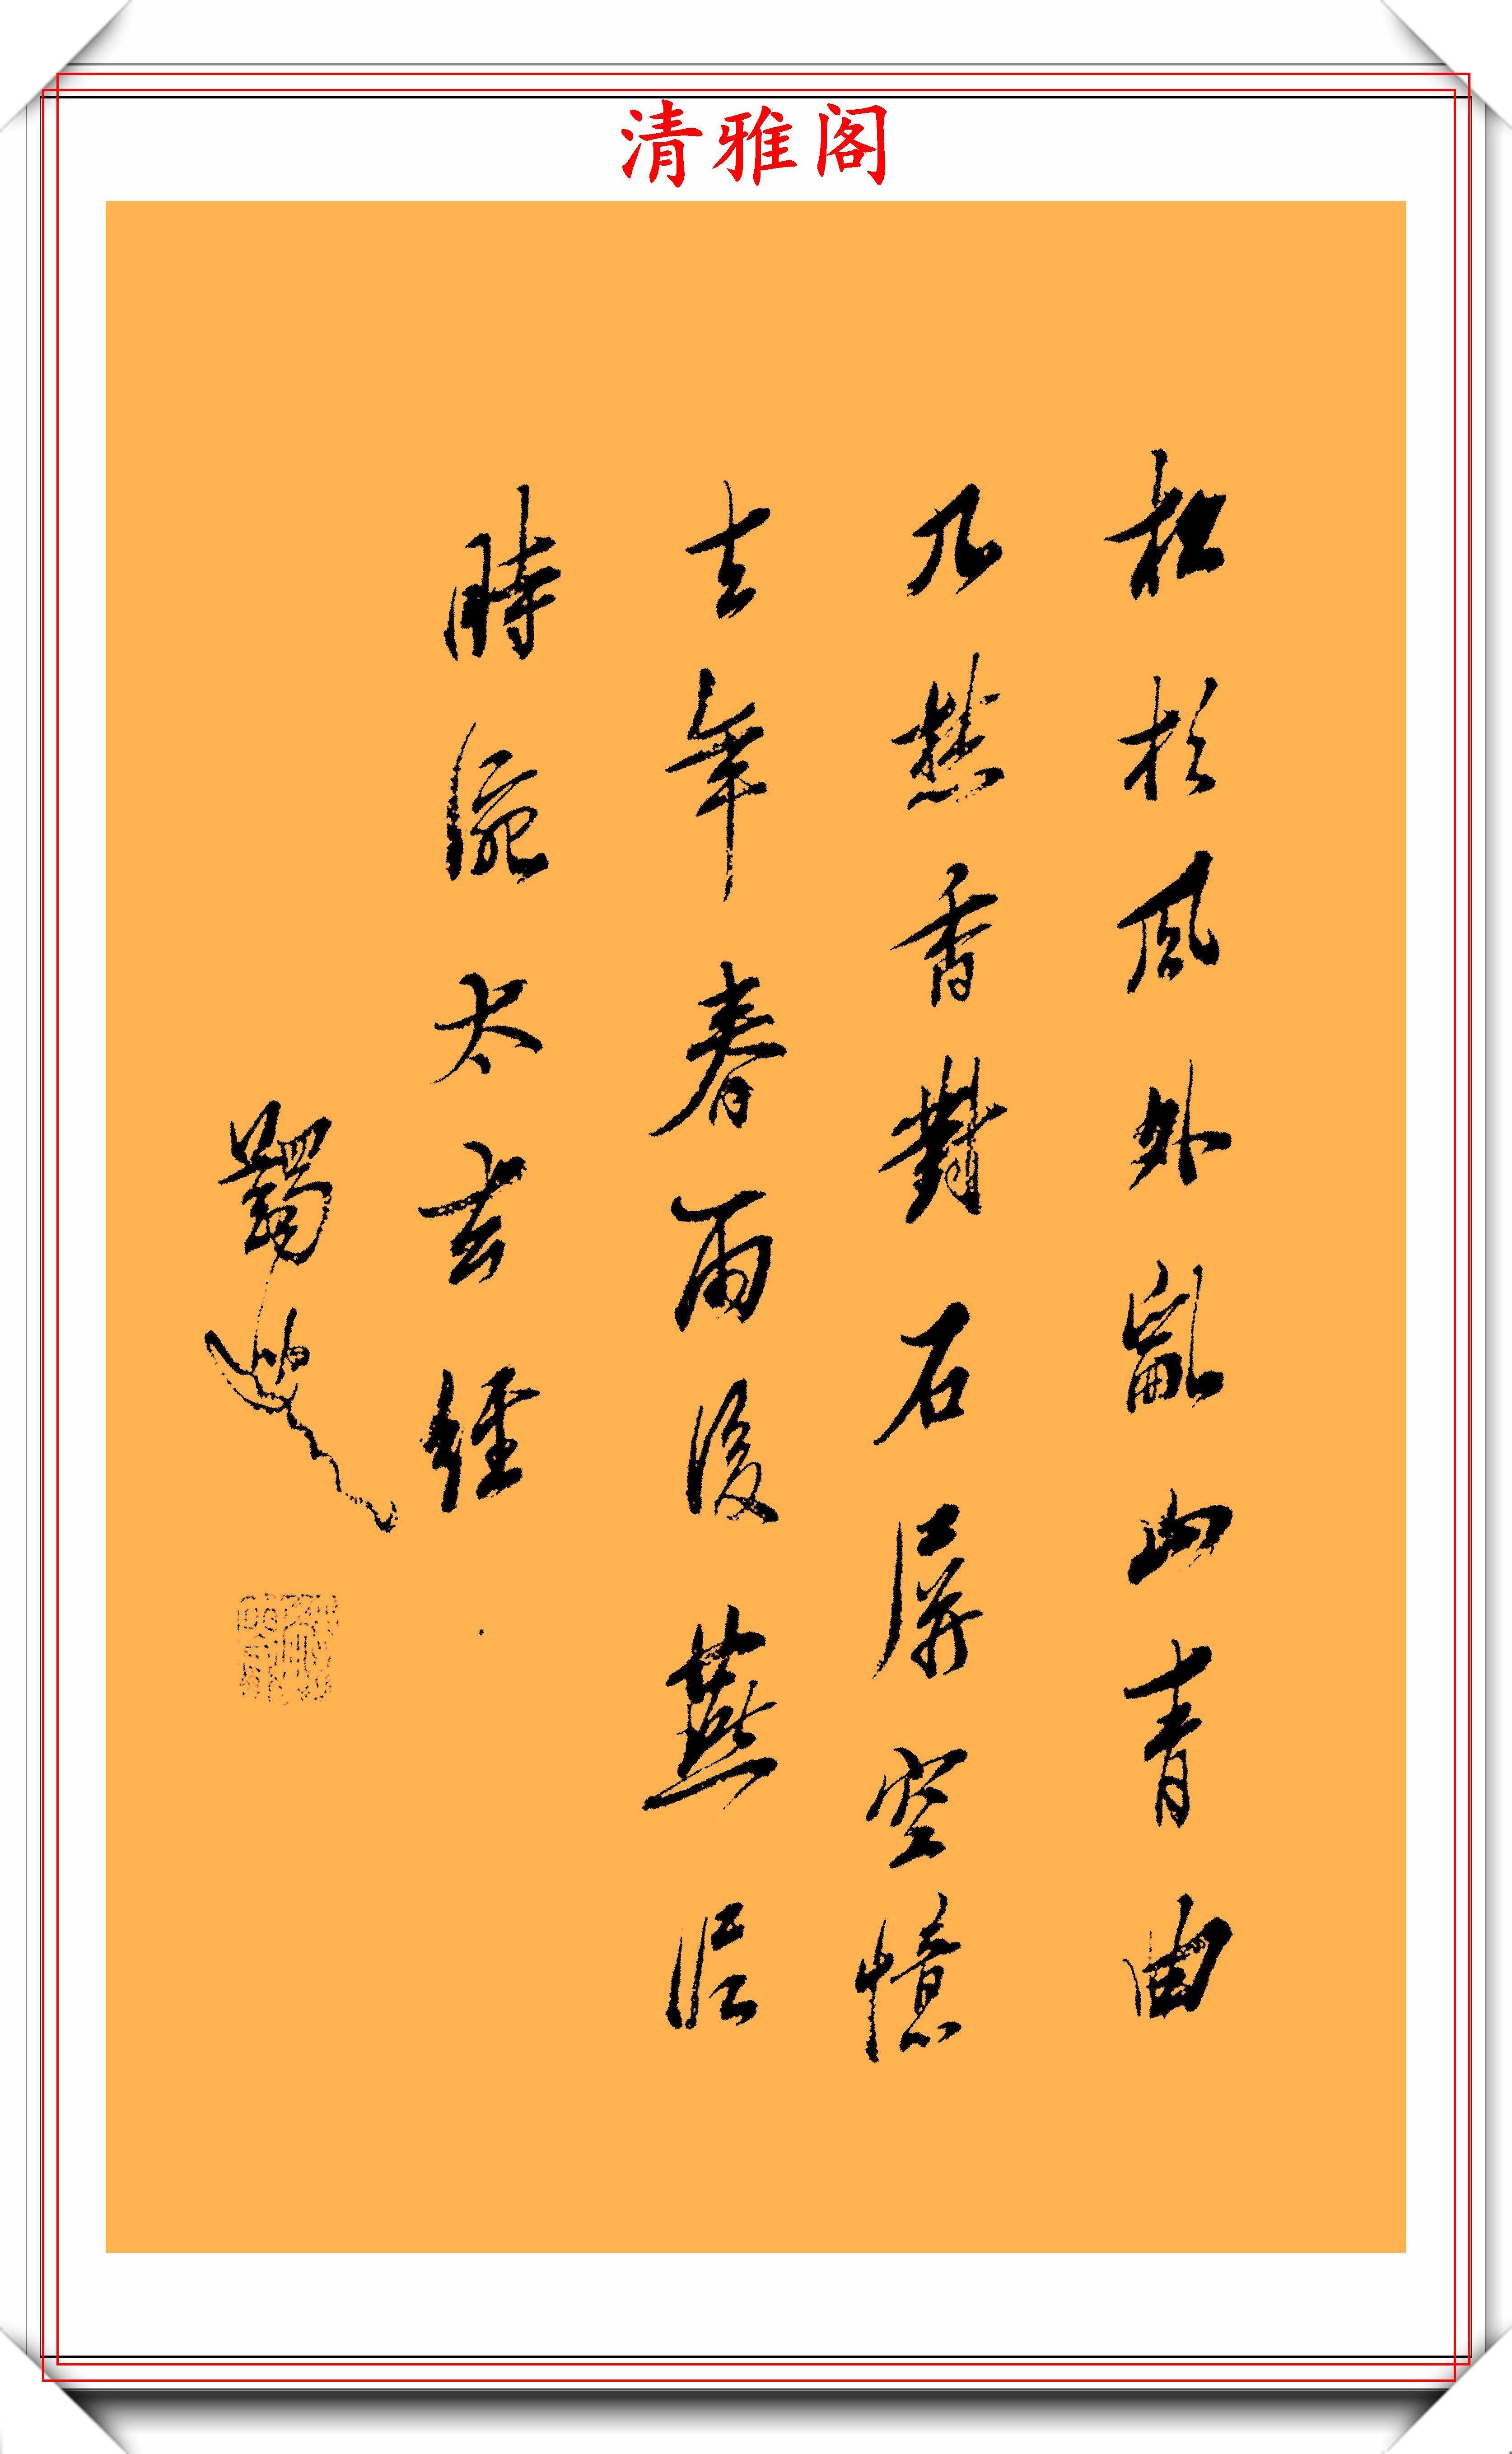 清雅阁
松杉風外亂山青曲
几焚香對石屏空憶
去年春雨後燕泥
時涴太玄經